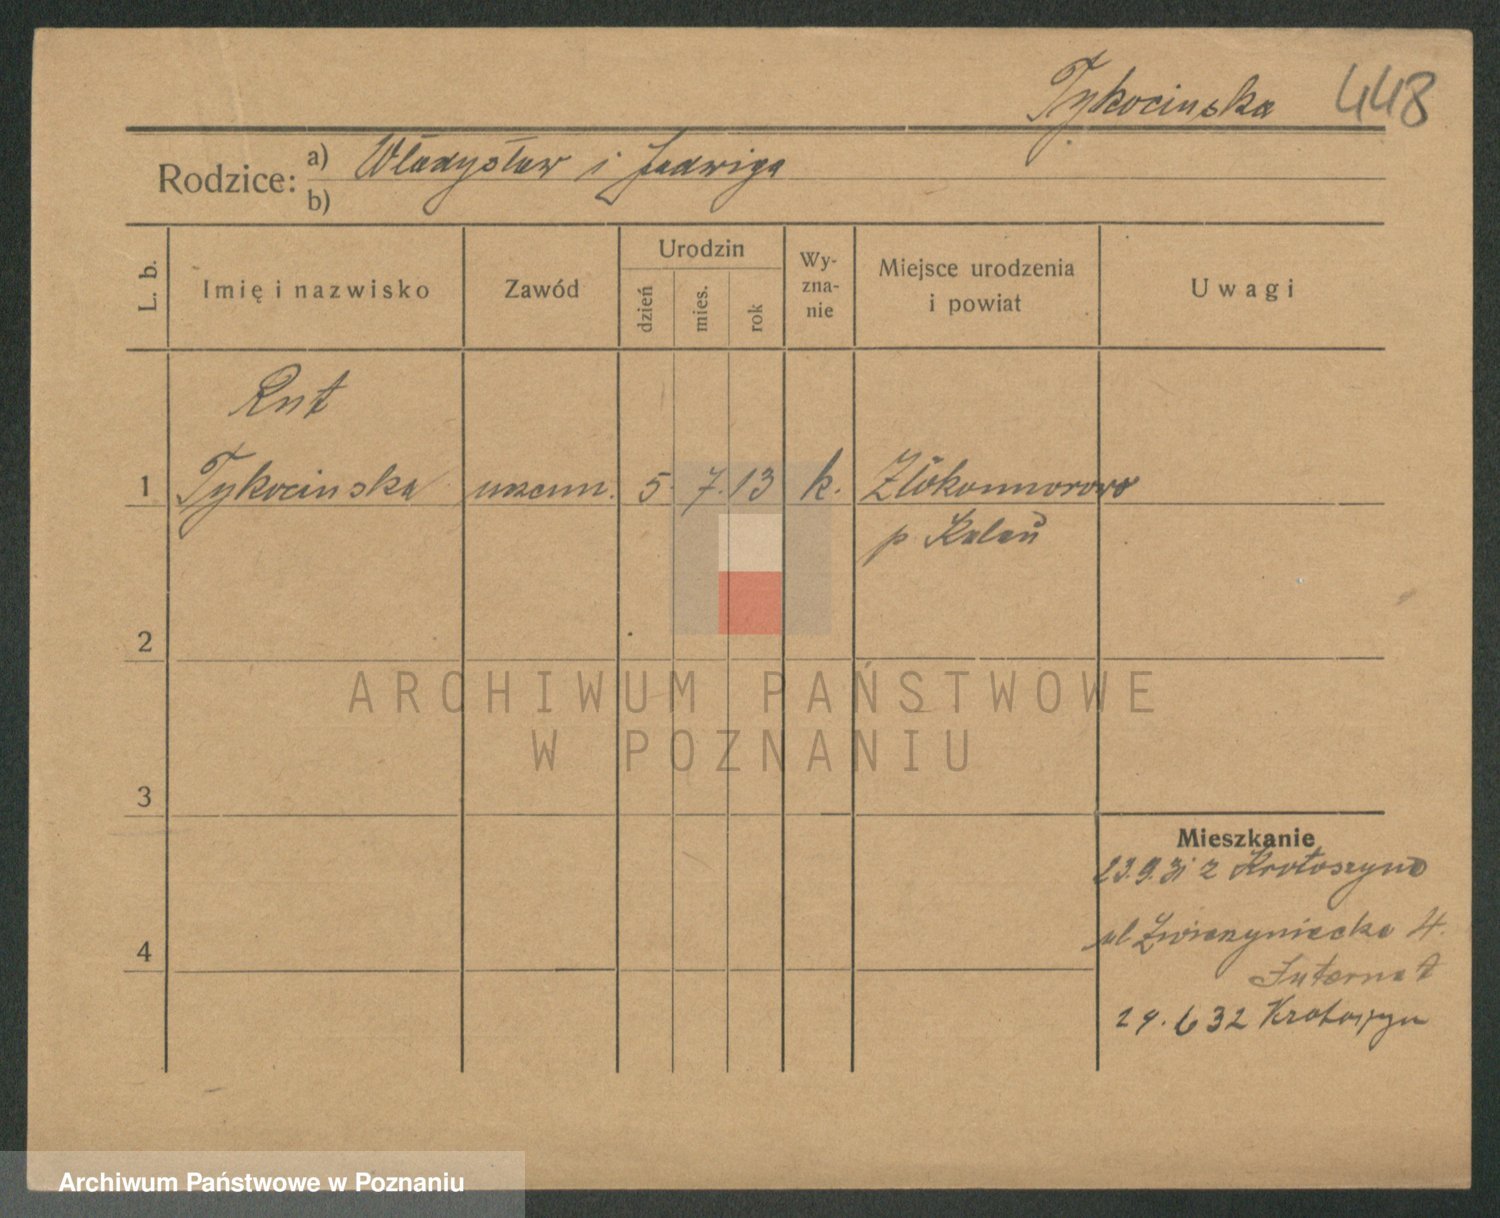 Tykocinska 448
Rodzice: a) Władysław i Jadwiga
b)
L. b. Imię i nazwisko Zawód Urodzin dzień mies. rok Wy-zna-nie Miejsce urodzenia i powiat Uwagi
Rut
1 Tykocinska uczenn. 5. 7. 13 k. Złokomorowo
p. Kalau
2
ARCHIWUM PAŃSTWOWE
W POZNANIU
3
Mieszkanie
23.9.31 z Krotoszyna
ul Zwierzyniecka 4.
Internat
4
29. 6 32 Krotoszyn
Archiwum Państwowe w Poznaniu